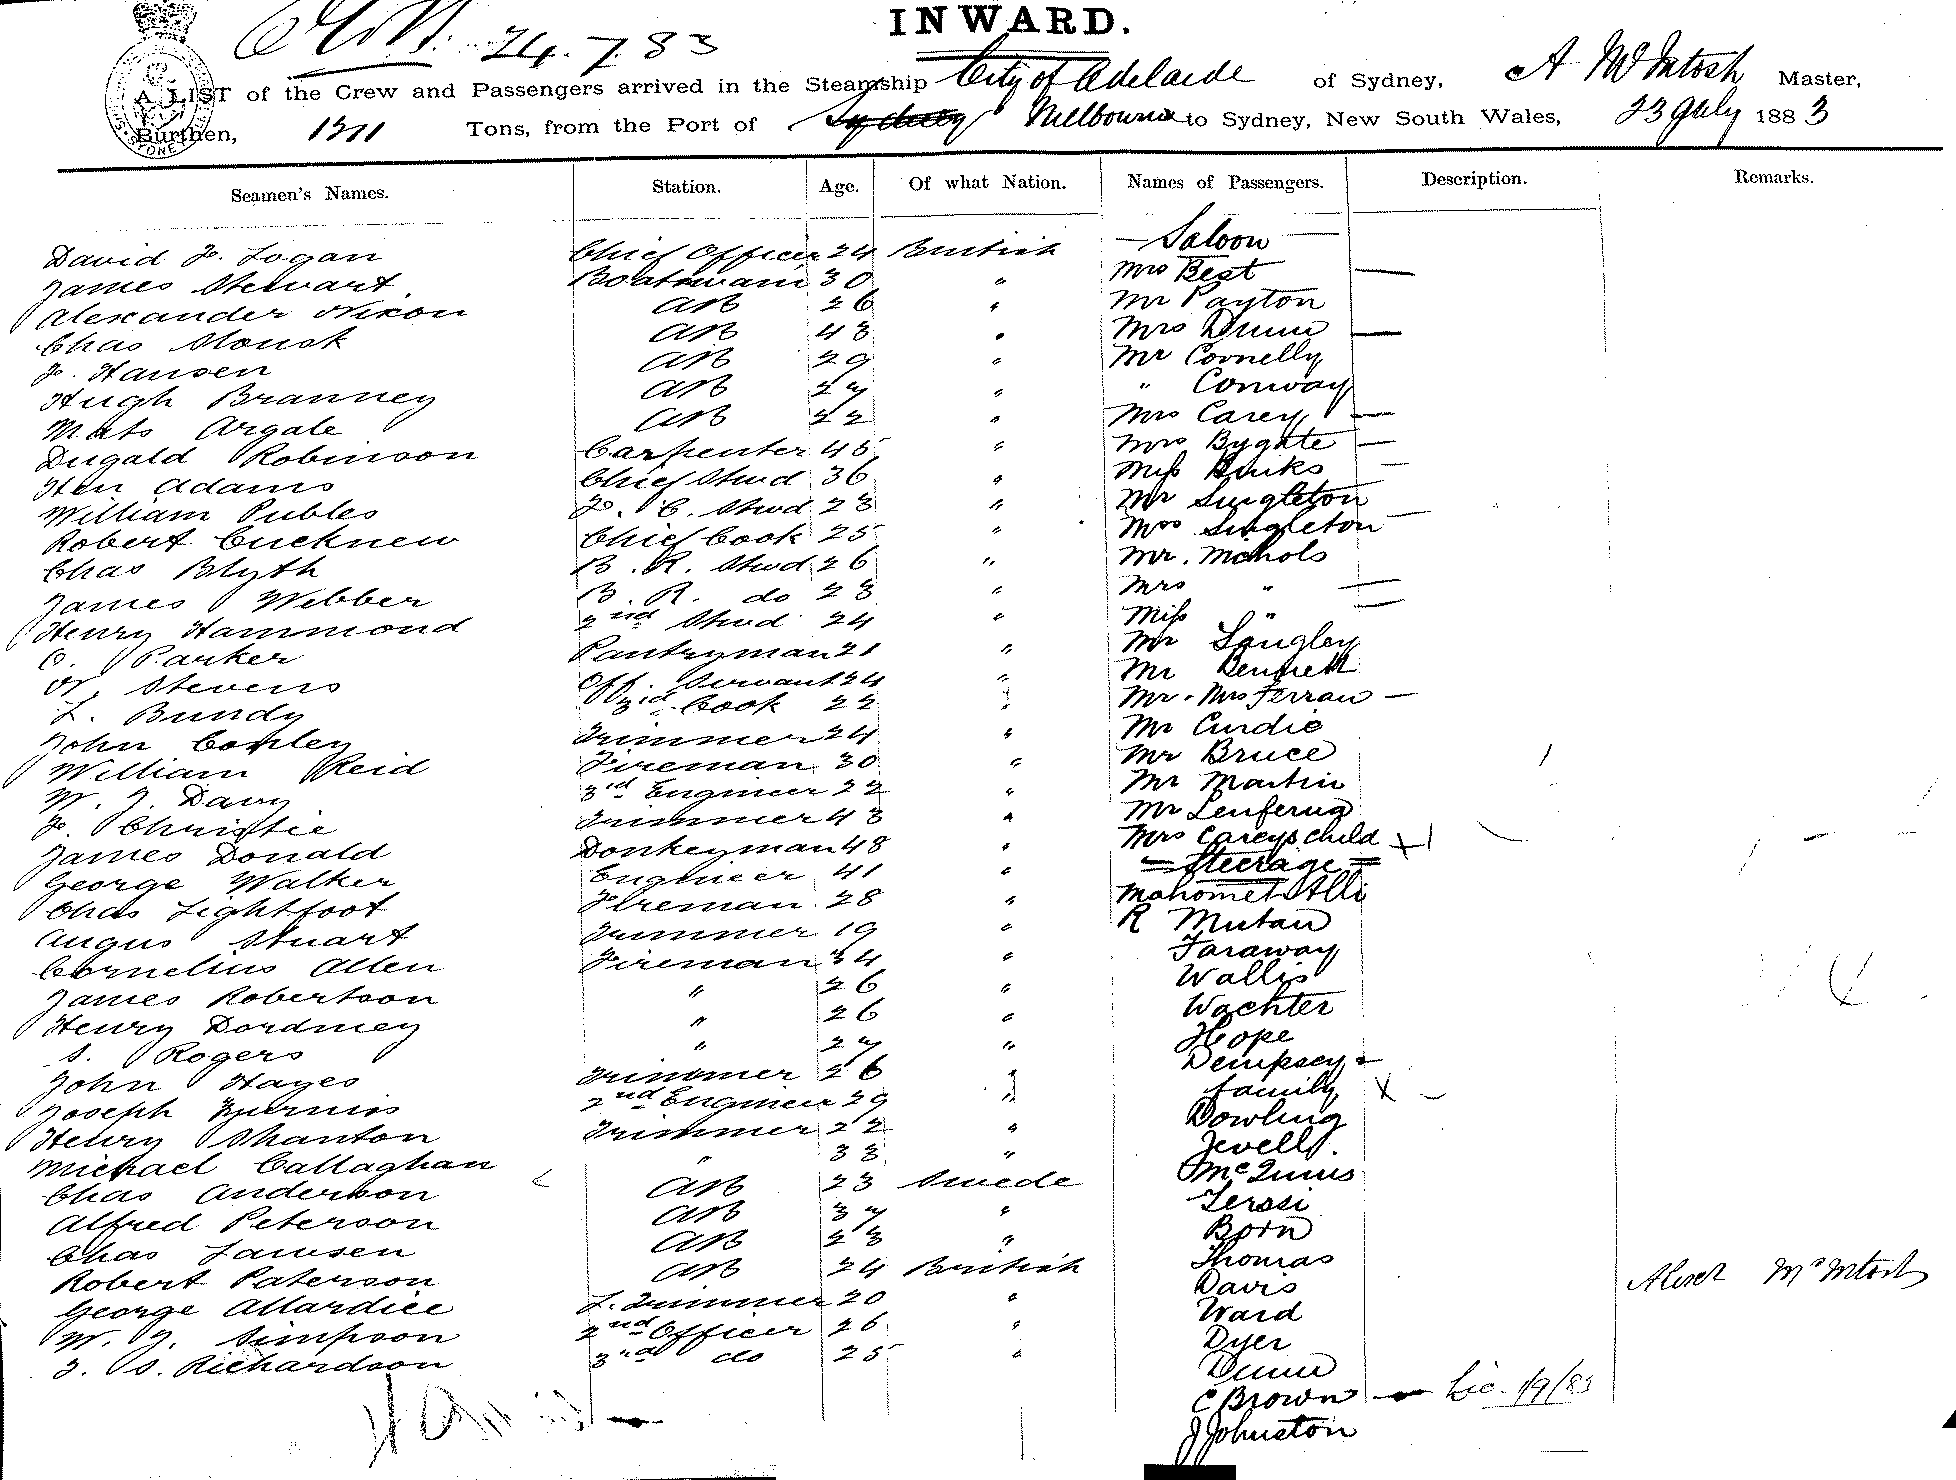 INWARD.
24.7.83
A LIST of the Crew and Passengers arrived in the Steamship City of Adelaide of Sydney, A McIntosh Master,
Burthen, Tons, from the Port of Sydney Melbourne to Sydney, New South Wales, 23 July 1883
Seamen's Names. Station. Age. Of what Nation. Names of Passengers. Description. Remarks.
Saloon
David J. Logan Chief Officer 24 British
Mrs Best —
James Stewart Boatswain 30 "
Mr Payton
Alexander Nixon AB 26 "
Mrs Dunn —
Chas AB 43 "
Mr Connelly
J. Hansen AB 29 "
" Conway
Hugh Branney AB 27 "
Mrs Carey —
Mats Argale AB 22 "
Mrs Bygate —
Dugald Robinson Carpenter 45 "
Miss Binks —
Hen Adams Chief Stwd 36 "
Mr Singleton
William Publes F. C. Stwd 23 "
Mrs Singleton —
Robert Cucknew Chief Cook 25 "
Mr. Nichols
Chas Blyth B. R. Stwd 26 "
Mrs " —
James Webber B. R. do 23 "
Miss " —
Henry Hammond 2nd Stwd 24 "
Mr Langley
C. Parker Pantryman 21 "
Mr Bennett
W. Stevens Off. Servant 24 "
Mr. Mrs Ferran —
L. Bundy Cook 22 "
Mr Curdie
John Conley Trimmer 24 "
Mr Bruce
William Reid Fireman 30 "
Mr Martin
W. J. Davy 3rd Engineer 22 "
Mr
J. Christie Trimmer 43 "
Mrs Careys child
James Donald Donkeyman 48 "
= Steerage =
George Walker Engineer 41 "
Mahomet Alli
Chas Lightfoot Fireman 28 "
R Mutan
Angus Stuart Trimmer 19 "
Faraway
Cornelius Allen Fireman 34 "
Wallis
James Robertson " 26 "
Wachter
Henry Dordmey " 26 "
Hope
S. Rogers " 27 "
Dempsey &
John Hayes Trimmer 26 "
family X
Joseph 2nd Engineer 29 "
Dowling
Henry Shanton Trimmer 22 "
Jewell
Michael Callaghan " 33 "
McInnis
Chas Anderson AB 23 Swede
Alfred Peterson AB 37 "
Born
Chas AB 23 "
Thomas
Robert Paterson AB 24 British
Davis
Alexr McIntosh
George Allardice Trimmer 20 "
Ward
W. J. Simpson 2nd Officer 26 "
Dyer
J. S. Richardson 3rd do 25 "
Dunn
C Brown 1/9/83
J Johnston